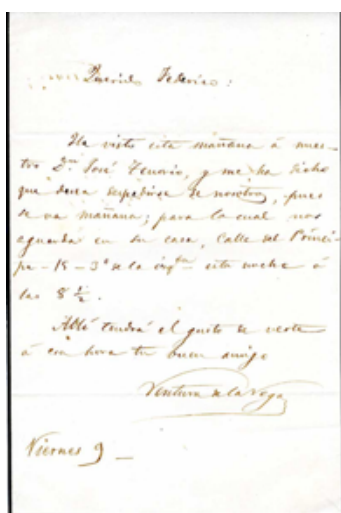 Querido Federico:
He visto esta mañana á nues-
tro Dn. José Tenorio, y me ha dicho
que desea despedirse de nosotros, pues
se va mañana; para lo cual nos
aguarda en su casa, Calle del Prínci-
pe - 18 - 3º de la izqda - esta noche á
las 8 ½.
Allí tendrá el gusto de verte
á esa hora tu buen amigo
Ventura de la Vega
Viernes 9 —